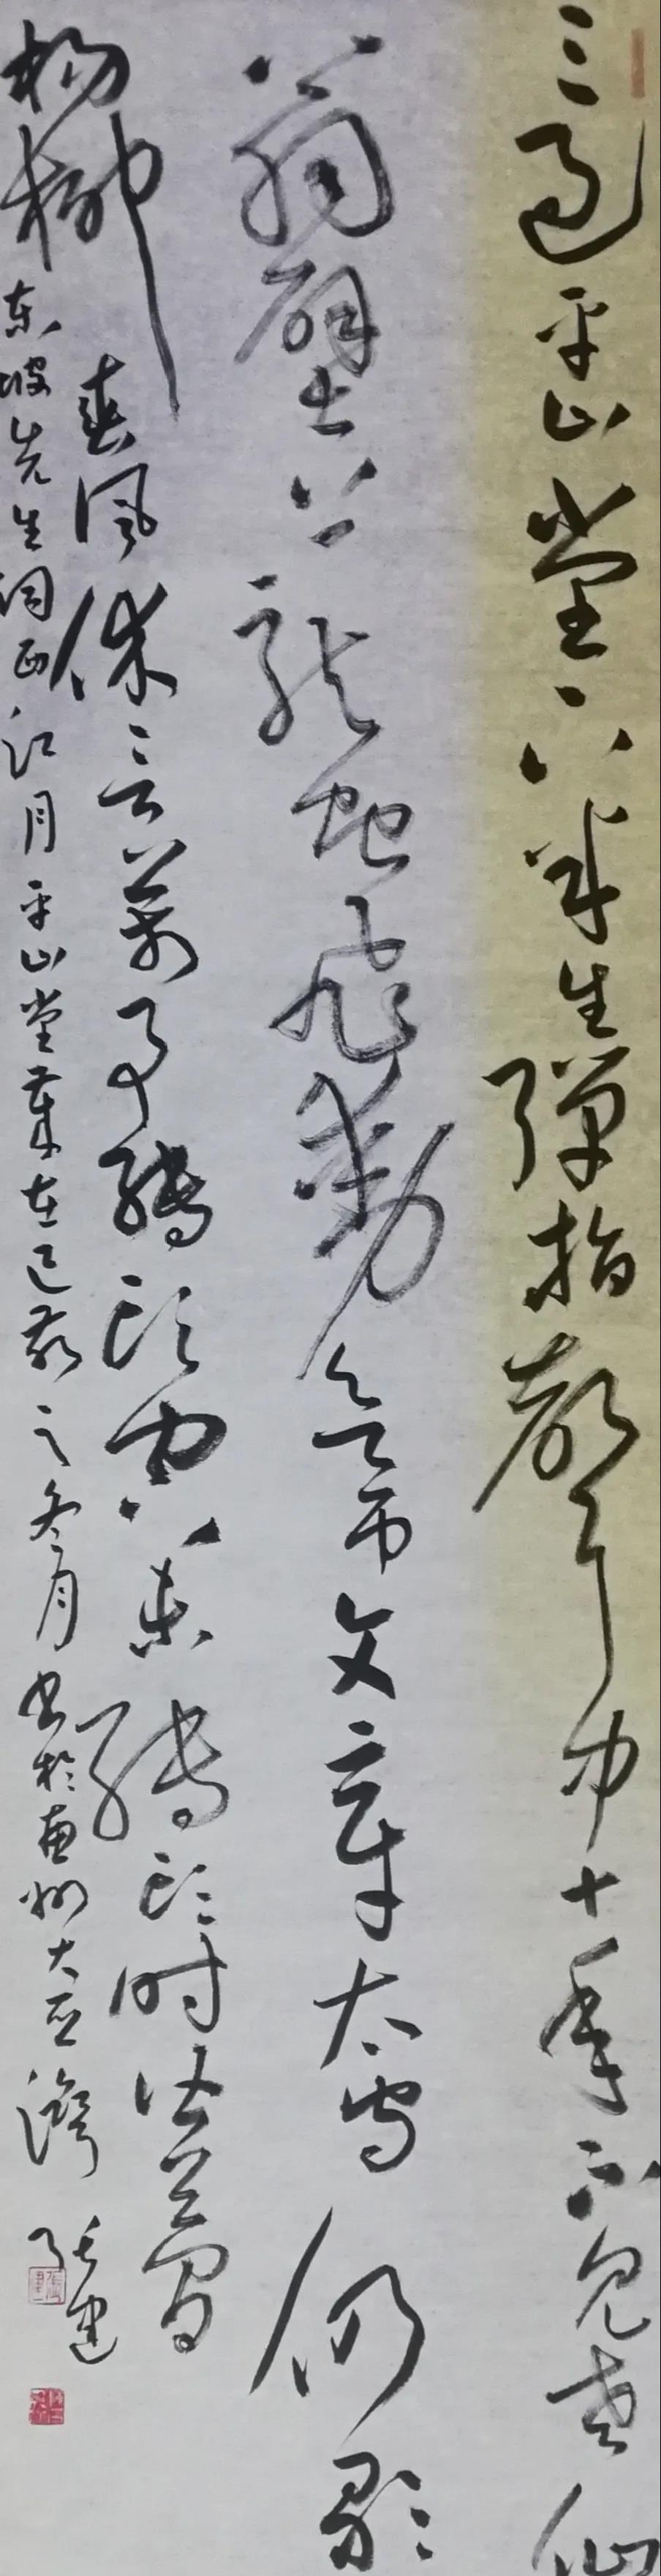 三過平山堂下半生彈指聲中十年不見老仙
翁壁上龍蛇飛動欲吊文章太守仍歌
楊柳春風休言萬事轉頭空未轉頭時皆夢
東坡先生詞西江月平山堂歲在己亥之冬月書於惠州大亞灣 張建